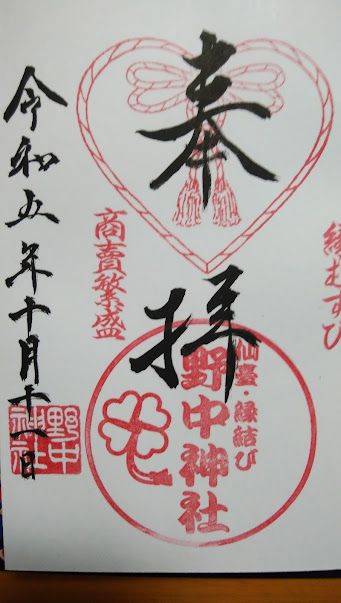 縁むすび
奉拝
商賣繁盛
仙臺・縁結び
野中神社
令和五年十月十一日
野中
神社